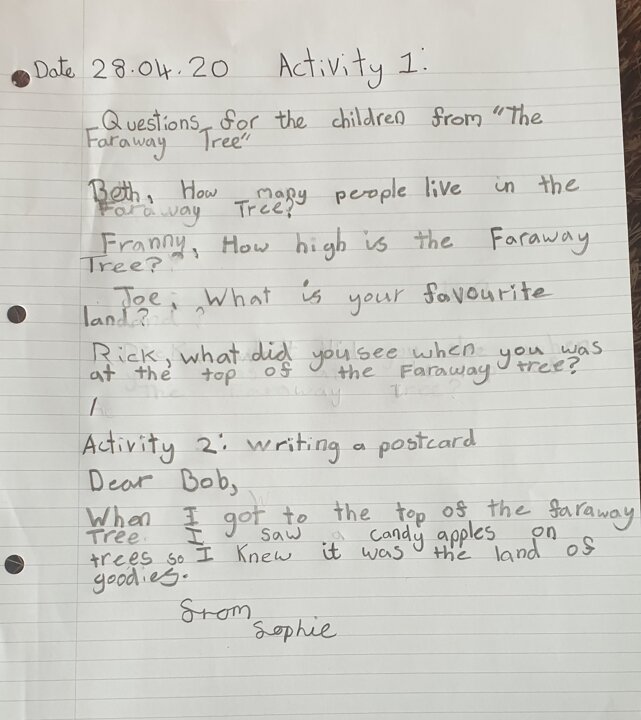 Date 28.04.20 Activity 1:
Questions for the children from "The
Faraway Tree"
Beth, How many people live in the
Faraway Tree?
Franny, How high is the Faraway
Tree?
Joe, What is your favourite
land?
Rick, what did you see when you was
at the top of the Faraway tree?
Activity 2: writing a postcard
Dear Bob,
When I got to the top of the faraway
Tree I saw candy apples on
trees so I knew it was the land of
goodies.
from
Sophie